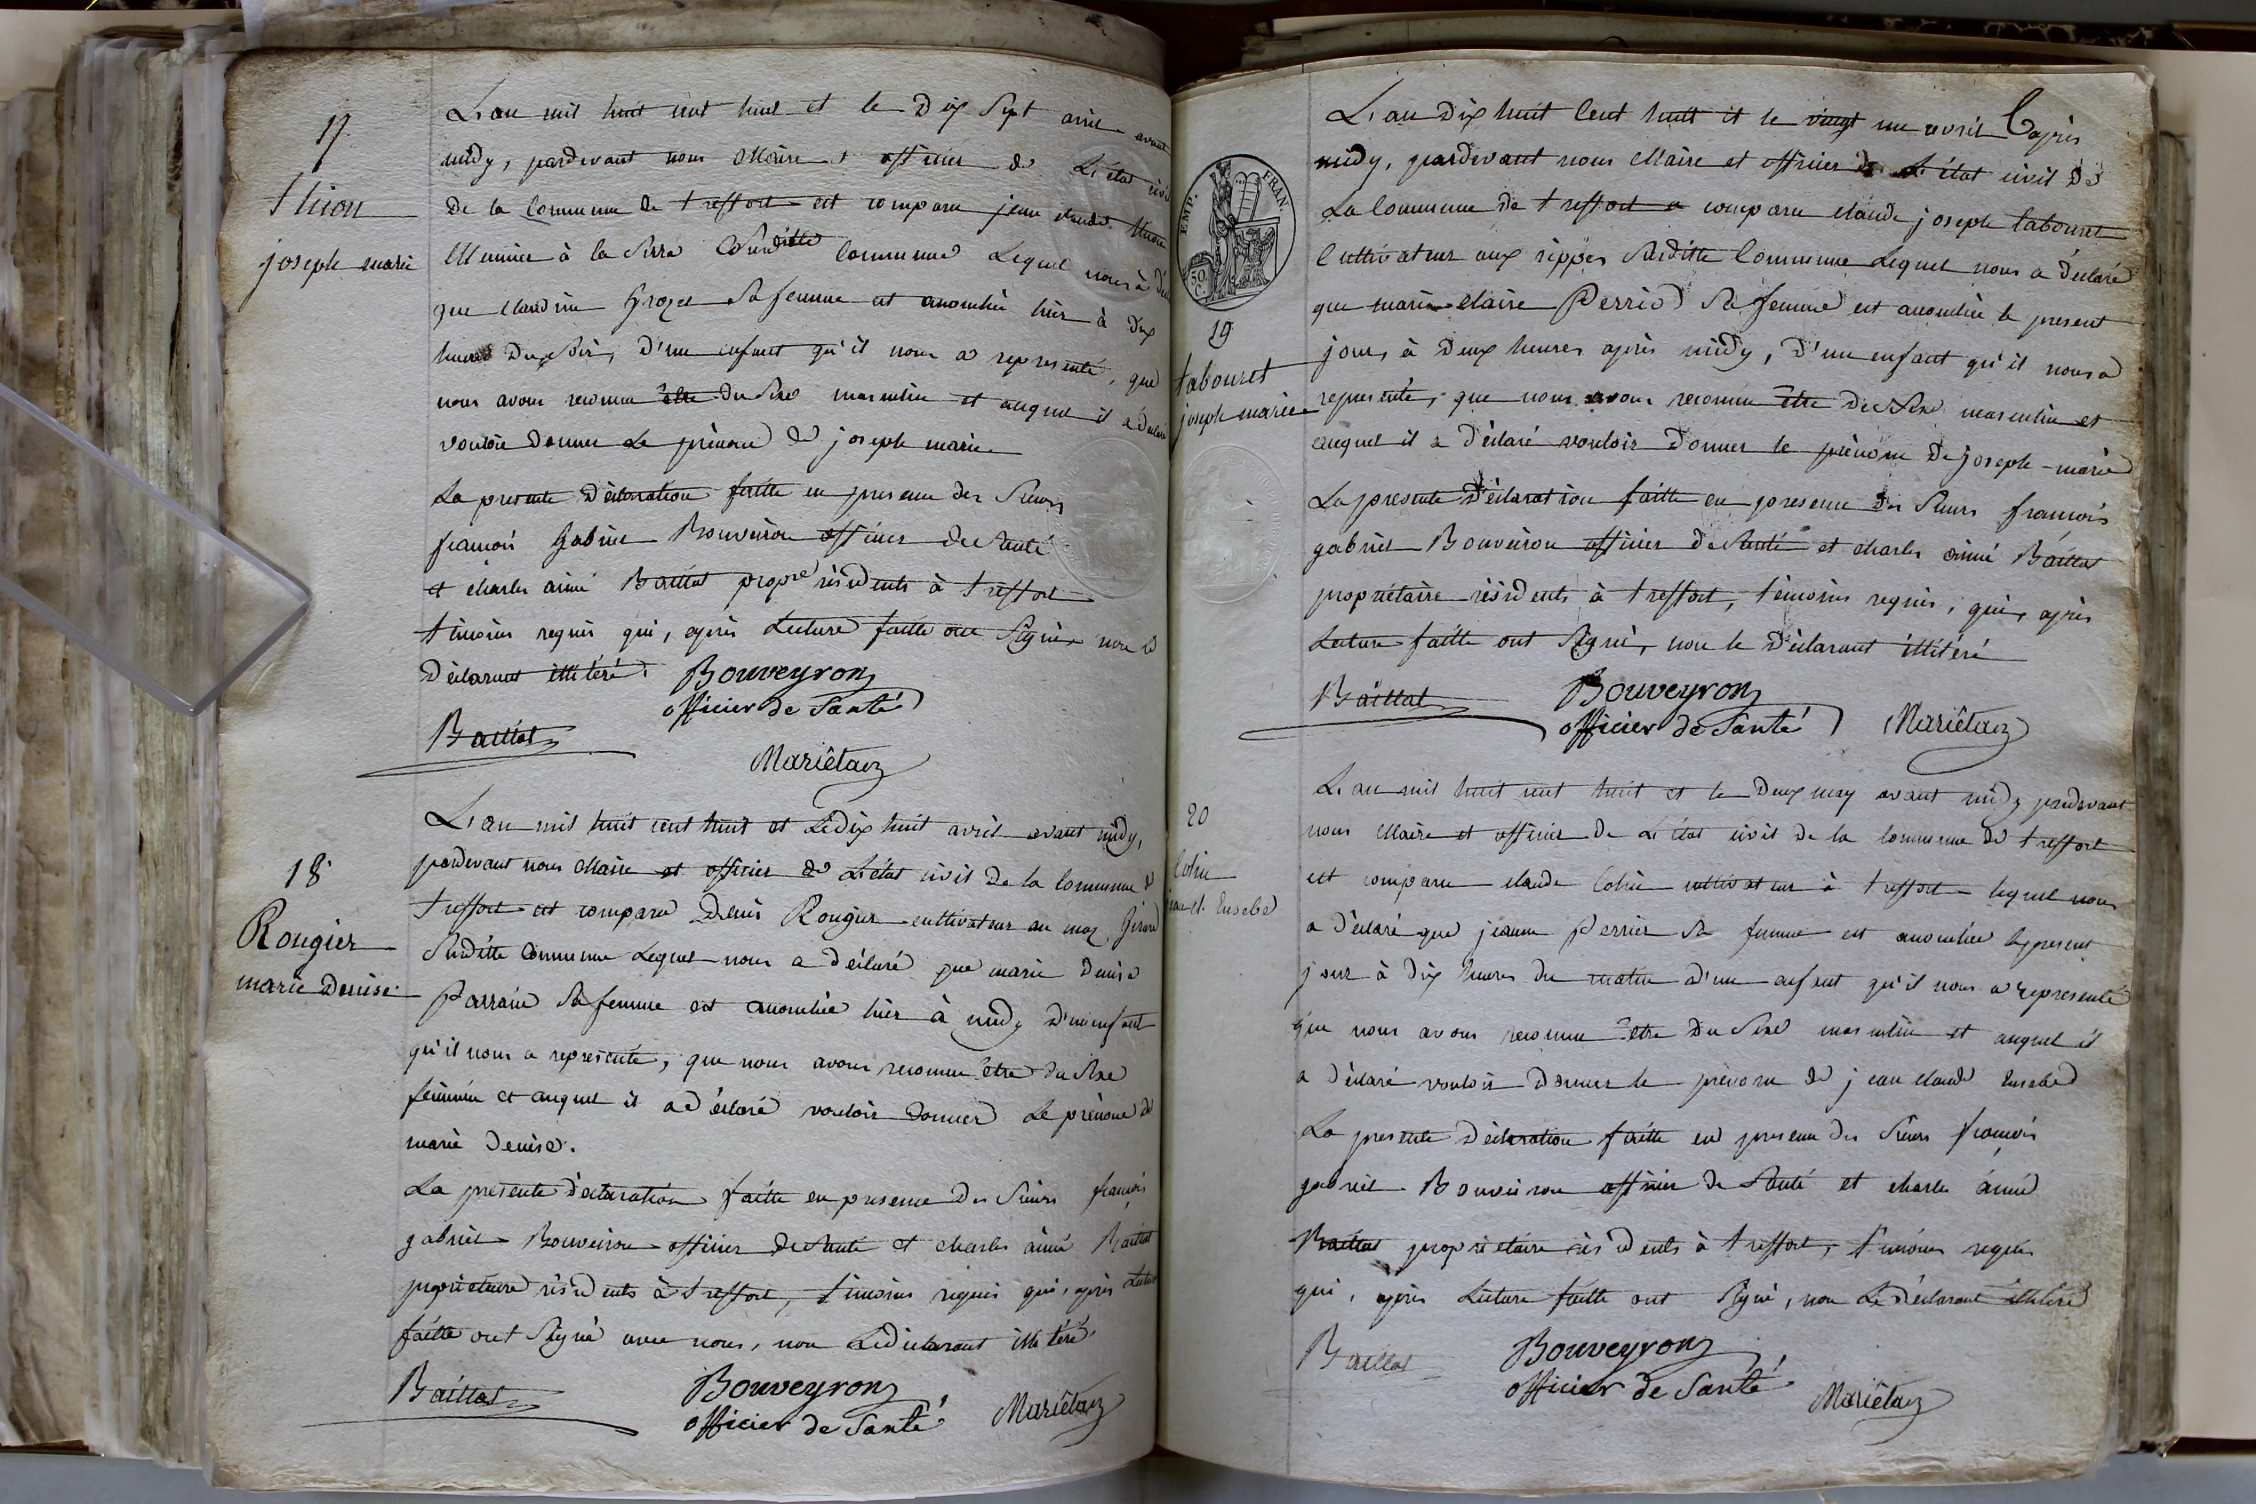 17
Thion
joseph marie
L'an mil huit cent huit et le dix sept avril avant
midy, pardevant nous Maire et officier de L'état civil
de la Commune de treffort est comparu jean claude thion
Meunier à la Serra Susditte Commune Lequel nous à
que Claudine Grozet Sa femme est accouchée hier à dix
heures du Soir, d'un enfant qu'il nous a representé, que
nous avons reconnu être du Sexe masculin et auquel il a déclaré
vouloir donner Le prénom de joseph marie
La presente déclaration faitte en presence des Sieurs
françois Gabriel Bouveiron officier de Santé
et charles aimé Baillat propre résidents à treffort
témoins requis qui, après Lecture faitte ont Signé, non le
déclarant illitéré.
Bouveyron
officier de Santé
Baillat
Mariétan
18
Rougier
marie Denise
L'an mil huit cent huit et Le dix huit avril avant midy,
pardevant nous Maire et officier de L'état civil de la Commune de
treffort est comparu Denis Rougier cultivateur au maz Girard
Susditte Commune Lequel nous a déclaré que marie Denise
Parrain Sa femme est accouchée hier à midy d'un enfant
qu'il nous a representé, que nous avons reconnu être du Sexe
féminin et auquel il a déclaré vouloir donner Le prénom de
marie Denise.
La presente déclaration faitte en presence des Sieurs françois
gabriel Bouveiron officier de Santé et charles aimé Baillat
propriétaire résidents à treffort, témoins requis qui, après Lecture
faitte ont Signé avec nous, non Le déclarant illitéré.
Baillat
Bouveyron
officier de Santé
Mariétan
EMP. FRAN.
50 C.
19
tabouret
joseph marie
L'an dix huit Cent huit et le vingt un avril après
midy, pardevant nous Maire et officier de L'état civil de
La Commune de treffort a comparu claude joseph tabouret
Cultivateur aux rippes Susditte Commune Lequel nous a déclaré
que marie claire Perrio Sa femme est accouchée le present
jour, à deux heures après midy, d'un enfant qu'il nous a
representé, que nous avons reconnu être du Sexe masculin et
auquel il a déclaré vouloir donner le prénom de joseph-marie
La presente déclaration faitte en presence des Sieurs françois
gabriel Bouveiron officier de Santé et charles aimé Baillat
propriétaire résidents à treffort, témoins requis, qui, après
Lecture faitte ont Signé, non le déclarant illitéré
Baillat
Bouveyron
officier de Santé
Mariétan
20
Cotin
jean cl. Eusebe
L'an mil huit cent huit et le deux may avant midy pardevant
nous Maire et officier de L'état civil de la Commune de treffort
est comparu claude Cotin cultivateur à treffort lequel nous
a déclaré que jeanne Perrier Sa femme est accouchée le present
jour à dix heures du matin d'un enfant qu'il nous a representé
que nous avons reconnu être du Sexe masculin et auquel il
a déclaré vouloir donner le prénom de jean claude Eusebe
La presente déclaration faitte en presence des Sieurs françois
gabriel Bouveiron officier de Santé et charles aimé
Baillat propriétaire résidents à treffort, témoins requis
qui, après Lecture faitte ont Signé, non Le déclarant illitéré
Baillat
Bouveyron
officier de Santé
Mariétan